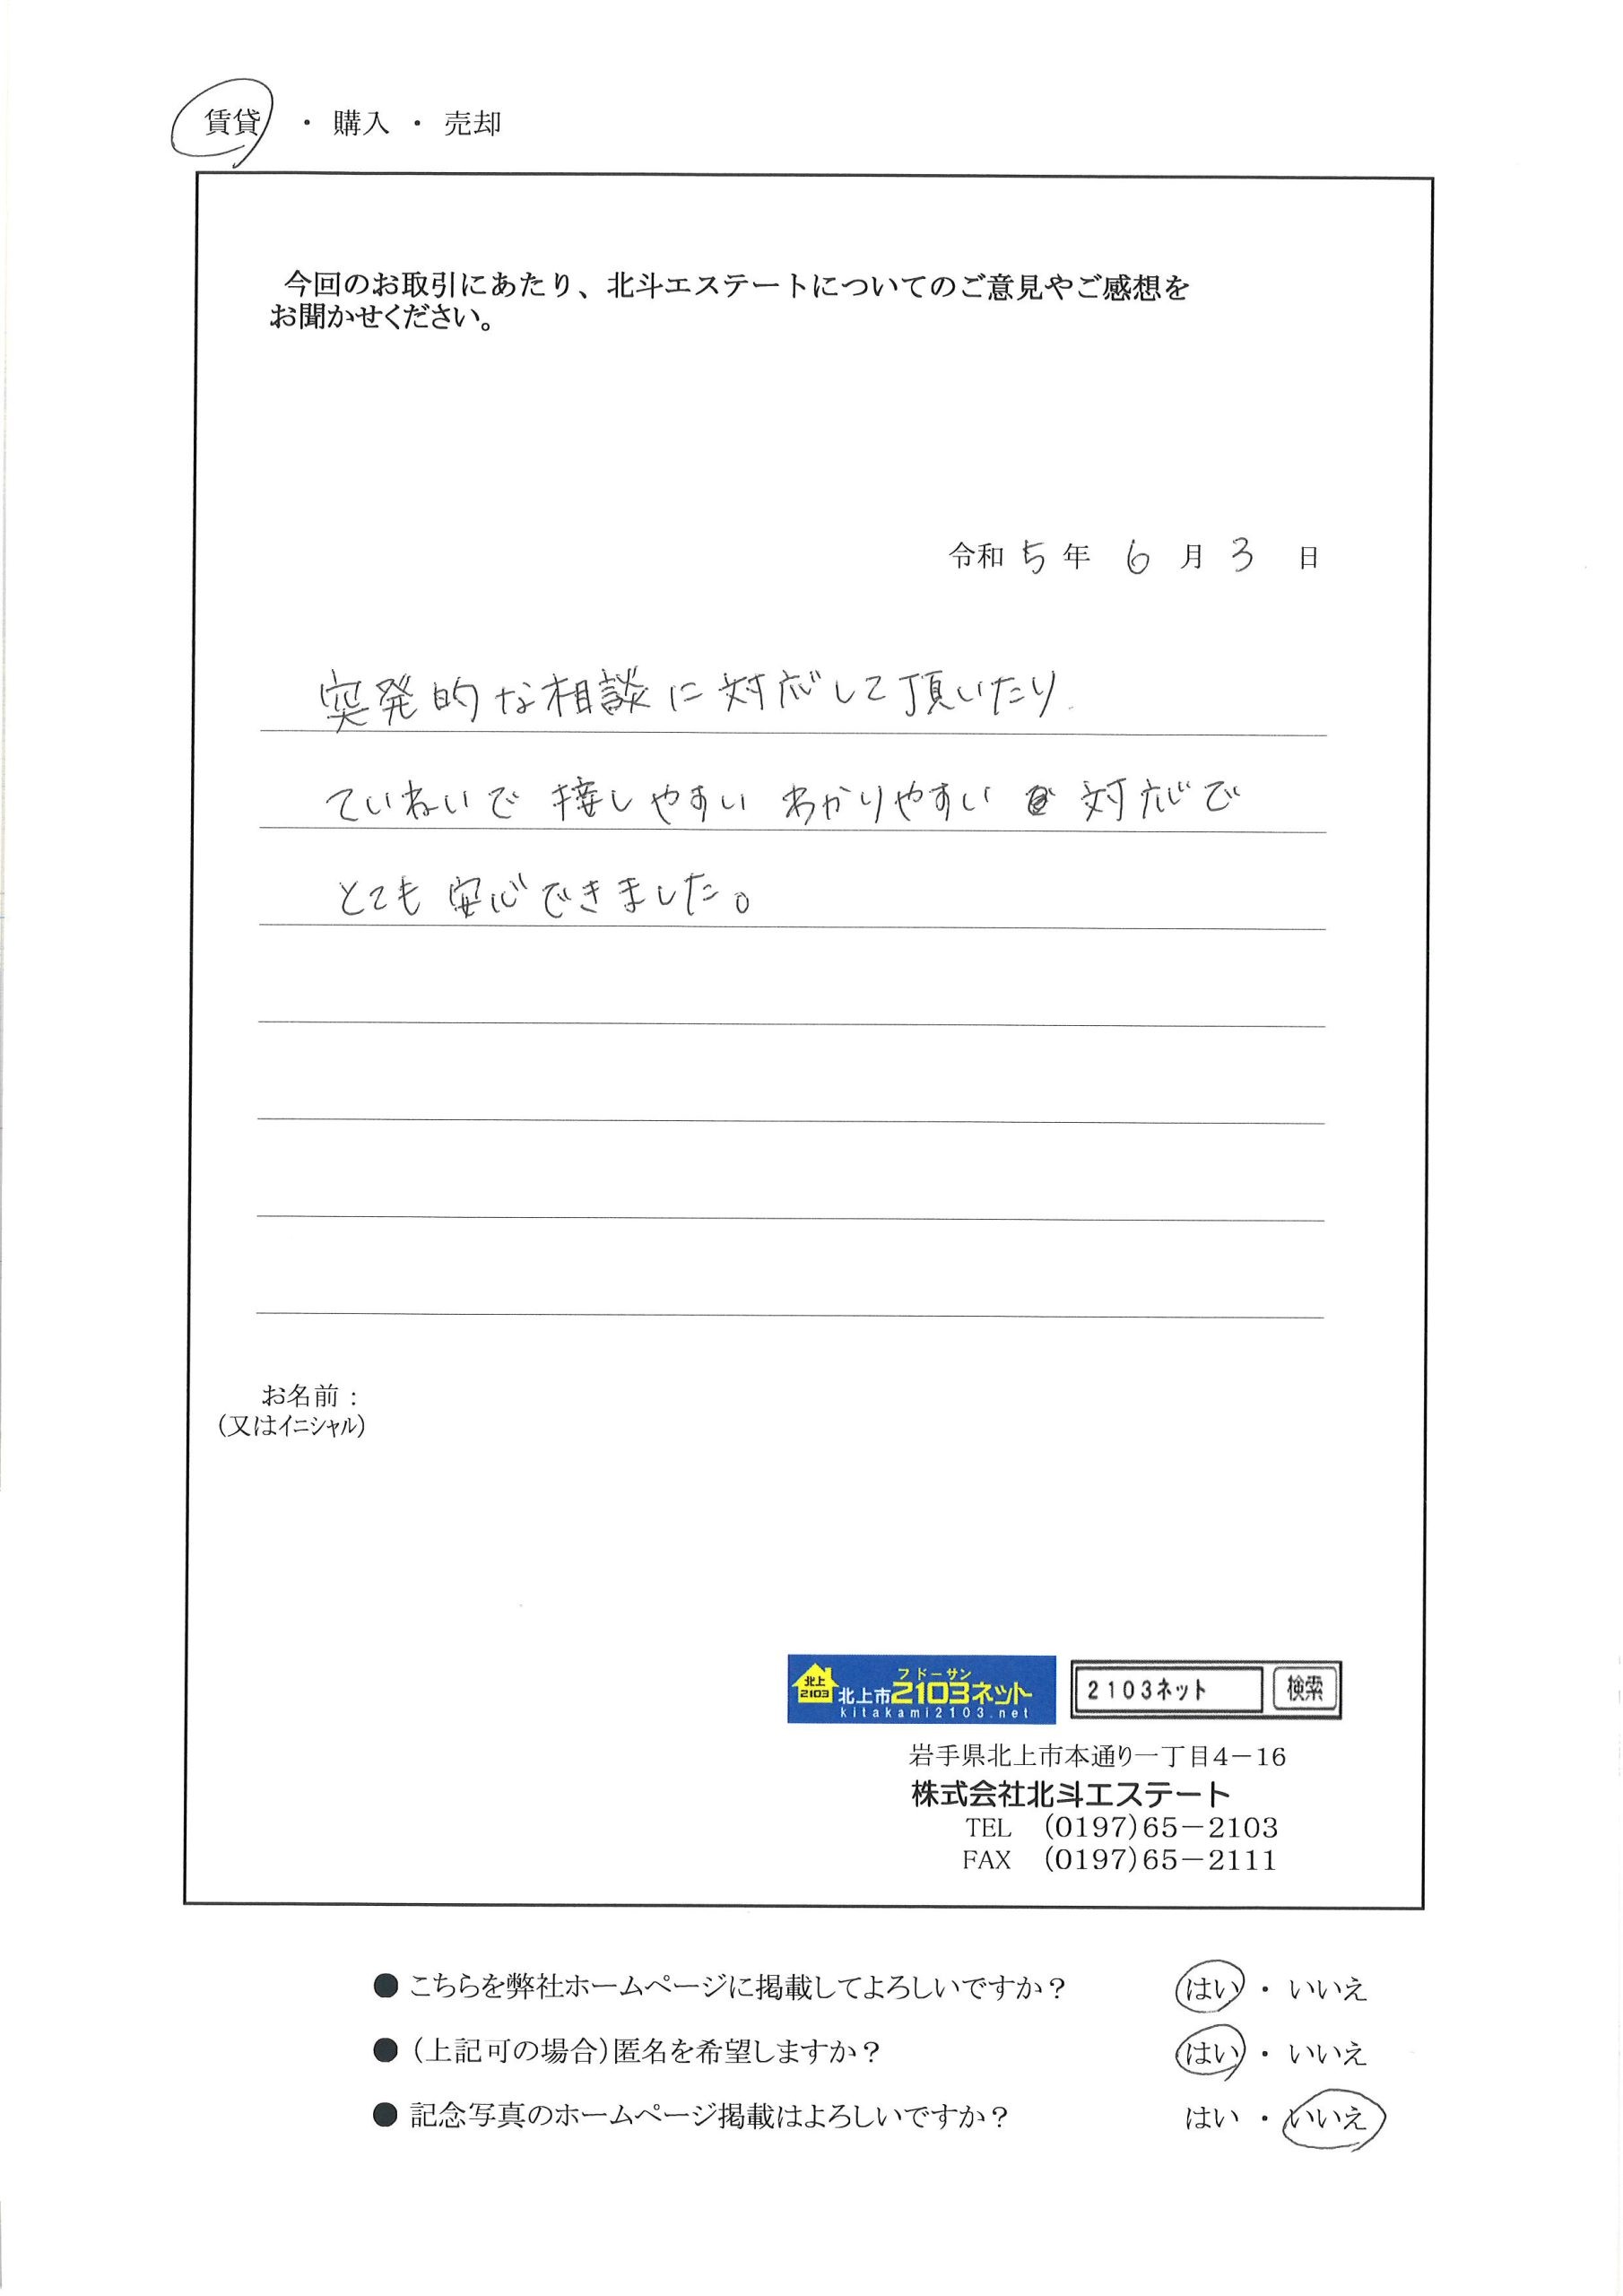 賃貸 ・ 購入 ・ 売却
今回のお取引にあたり、北斗エステートについてのご意見やご感想を
お聞かせください。
令和 5 年 6 月 3 日
突発的な相談に対応して頂いたり
ていねいで 接しやすい わかりやすい 対応で
とても 安心できました。
お名前：
（又はイニシャル）
北上
2103
フドーサン
北上市2103ネット
kitakami2103.net
2103ネット 検索
岩手県北上市本通り一丁目4－16
株式会社北斗エステート
TEL （0197）65－2103
FAX （0197）65－2111
● こちらを弊社ホームページに掲載してよろしいですか？ はい ・ いいえ
● （上記可の場合）匿名を希望しますか？ はい ・ いいえ
● 記念写真のホームページ掲載はよろしいですか？ はい ・ いいえ